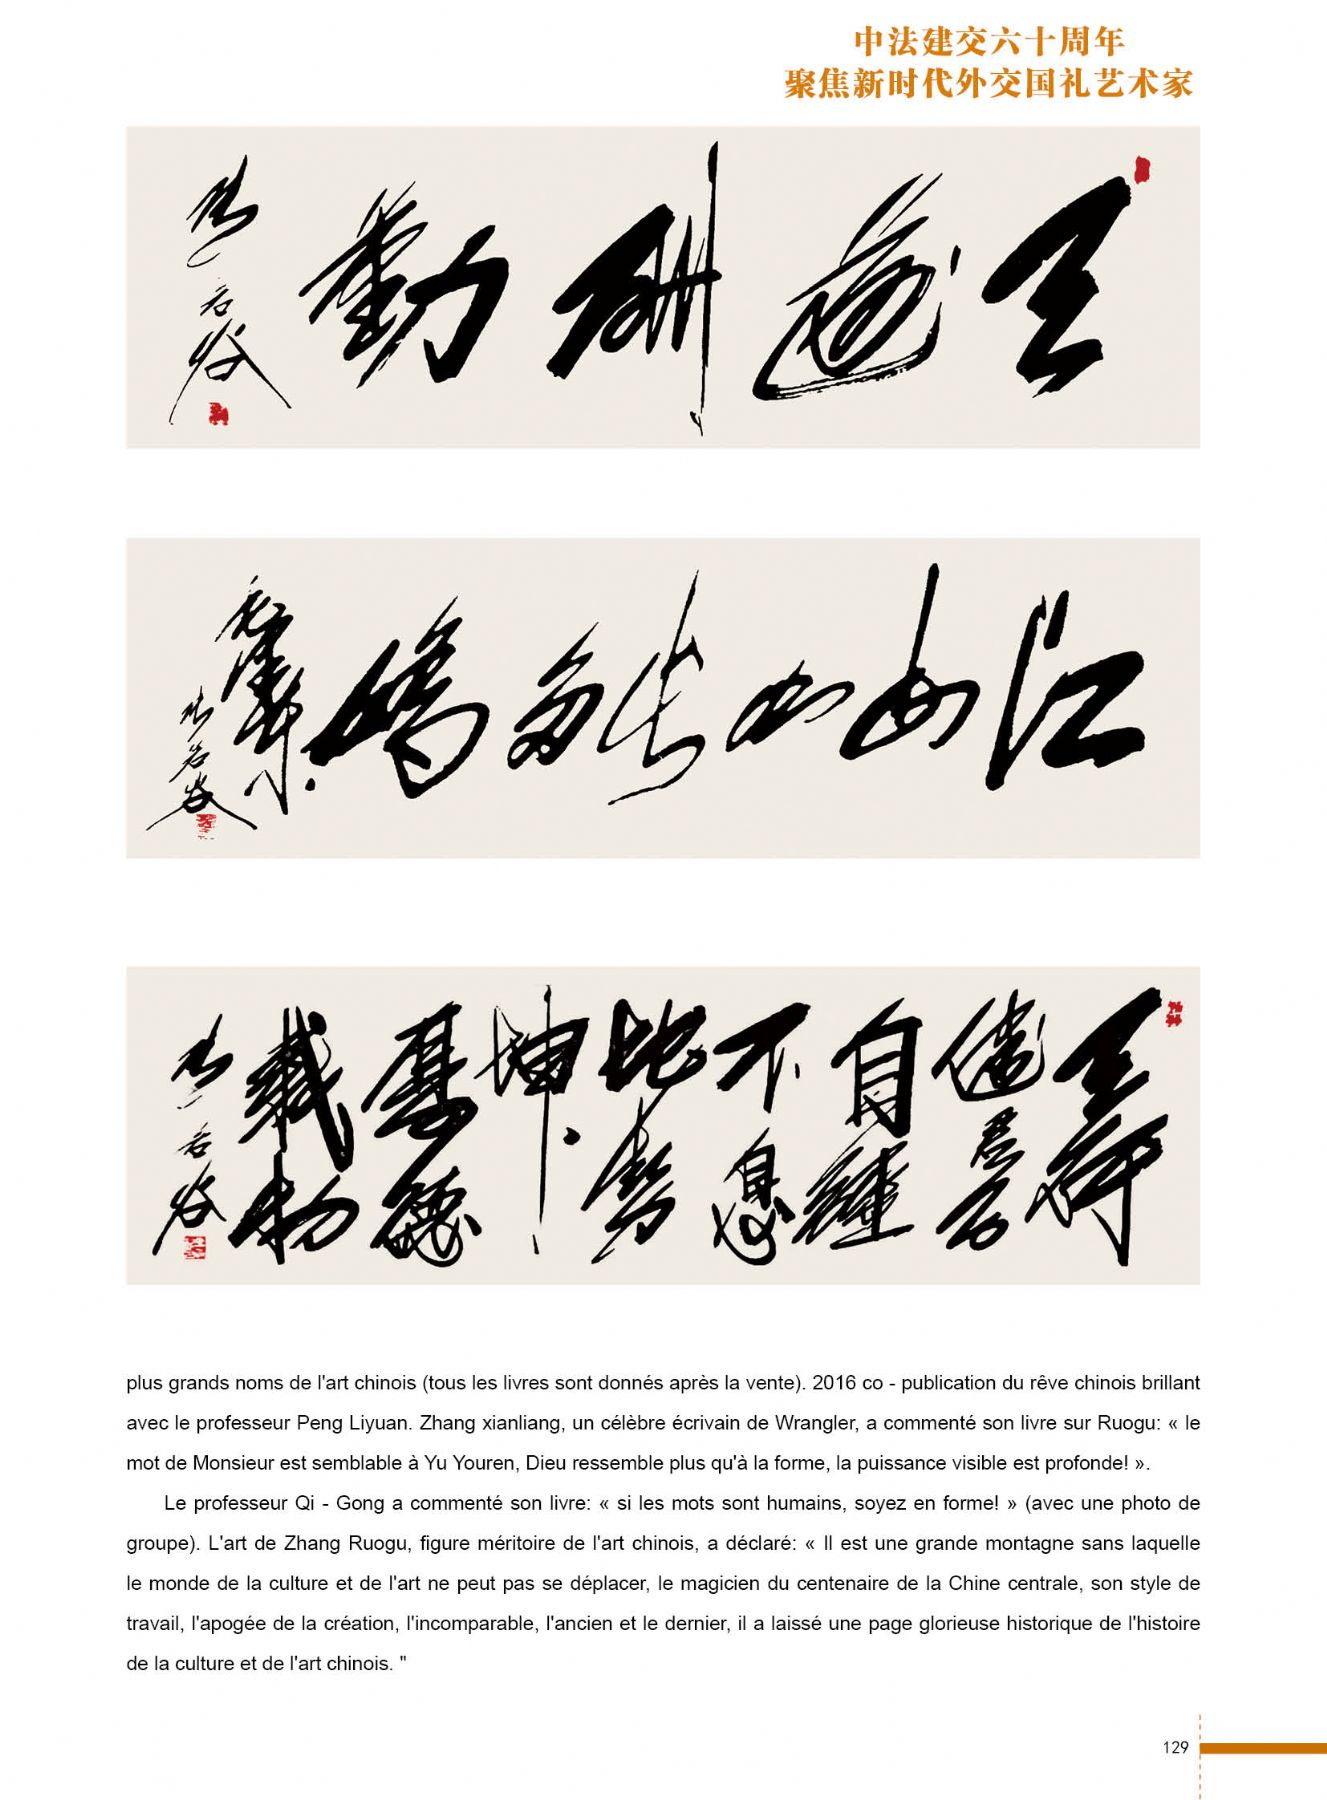 中法建交六十周年
聚焦新时代外交国礼艺术家
天道酬勤
张若谷
江山如此多娇
张若谷
天行
健君子
自强
不息
地势
坤
厚德
载物
张若谷
plus grands noms de l'art chinois (tous les livres sont donnés après la vente). 2016 co - publication du rêve chinois brillant
avec le professeur Peng Liyuan. Zhang xianliang, un célèbre écrivain de Wrangler, a commenté son livre sur Ruogu: « le
mot de Monsieur est semblable à Yu Youren, Dieu ressemble plus qu'à la forme, la puissance visible est profonde! ».
Le professeur Qi - Gong a commenté son livre: « si les mots sont humains, soyez en forme! » (avec une photo de
groupe). L'art de Zhang Ruogu, figure méritoire de l'art chinois, a déclaré: « Il est une grande montagne sans laquelle
le monde de la culture et de l'art ne peut pas se déplacer, le magicien du centenaire de la Chine centrale, son style de
travail, l'apogée de la création, l'incomparable, l'ancien et le dernier, il a laissé une page glorieuse historique de l'histoire
de la culture et de l'art chinois. "
129